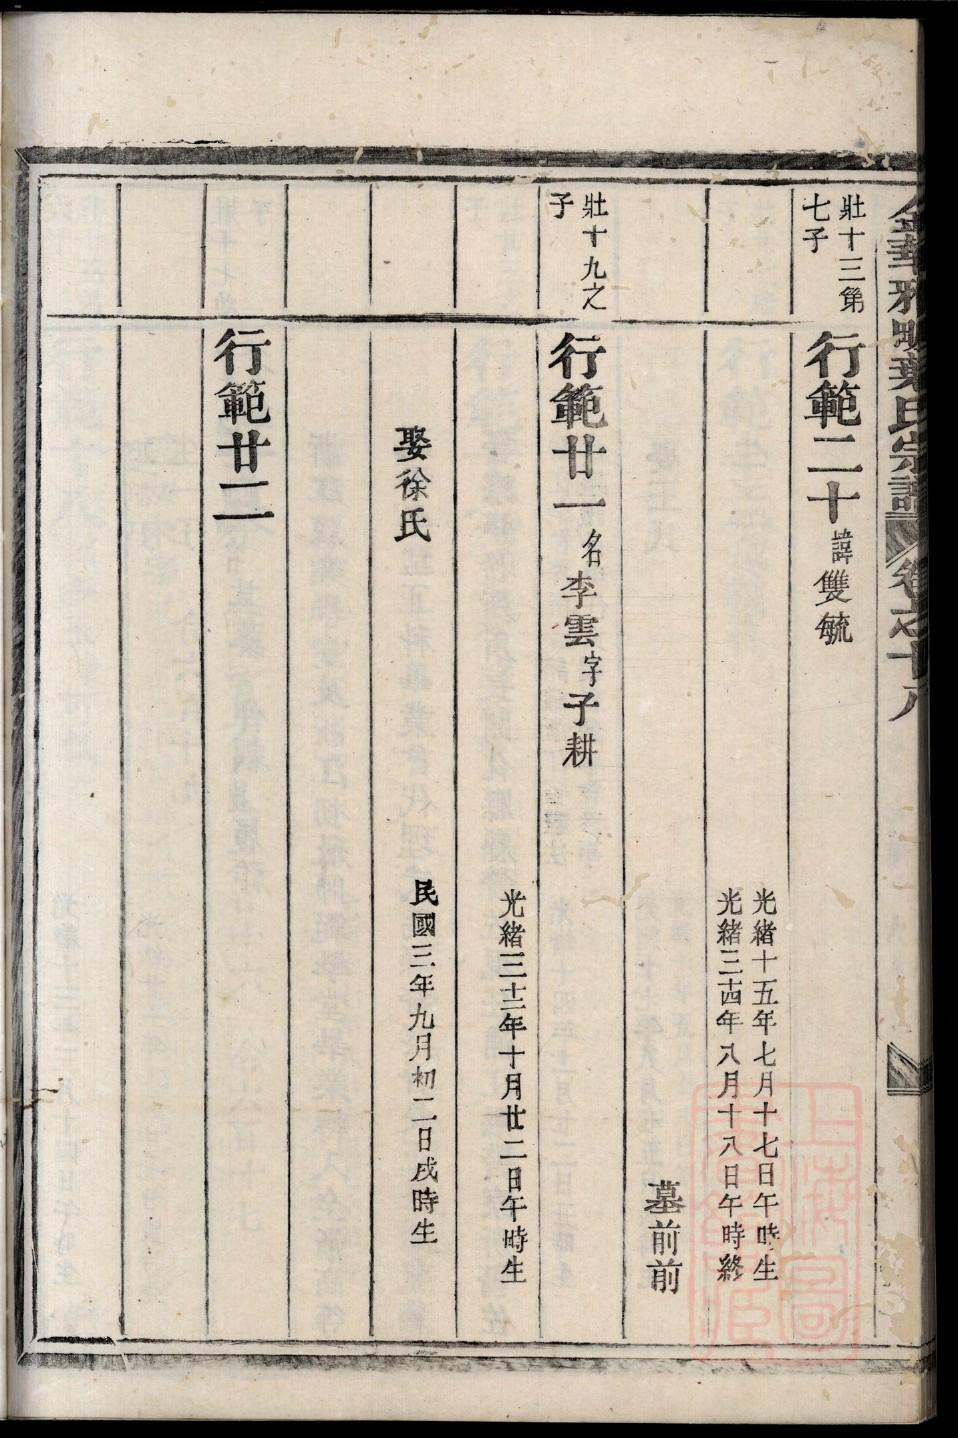 金華雅畈葉氏宗譜 卷之十八
壯十三第
七子
行範二十 諱雙毓
光緒十五年七月十七日午時生
光緒三十四年八月十八日午時終
墓前前
壯十九之
子
行範廿一 名李雲字子耕
光緒三十三年十月廿二日午時生
娶徐氏
民國三年九月初二日戌時生
行範廿二
上海圖書館藏